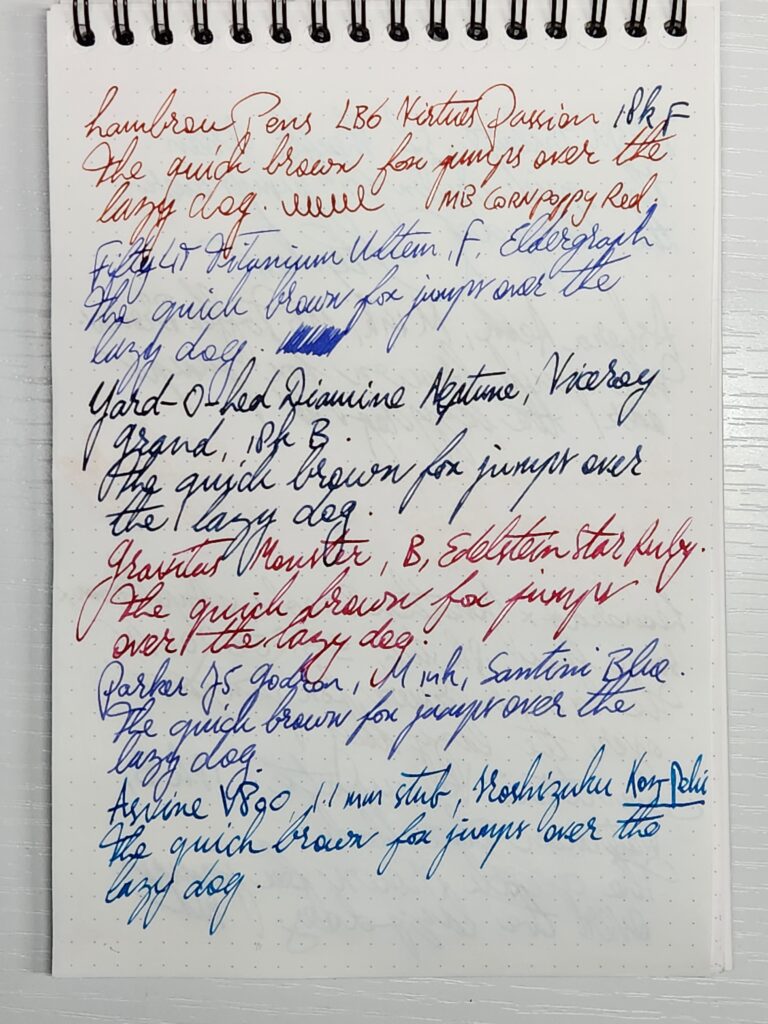 Lambrou Pens LB6 Virtues Passion 18k F
The quick brown fox jumps over the
lazy dog. MB Corn poppy Red.
Fifty4T Titanium Ultem, F, Eldergraph
The quick brown fox jumps over the
lazy dog.
Yard-O-Led Diamine Neptune, Viceroy
grand, 18k B.
The quick brown fox jumps over
the lazy dog.
Gravitas Monster, B, Edelstein Star Ruby.
The quick brown fox jumps
over the lazy dog.
Parker 75 Godron, M ink, Santini Blue.
The quick brown fox jumps over the
lazy dog.
Asvine V800, 1.1 mm stub, Iroshizuku Kon-Peki
The quick brown fox jumps over the
lazy dog.